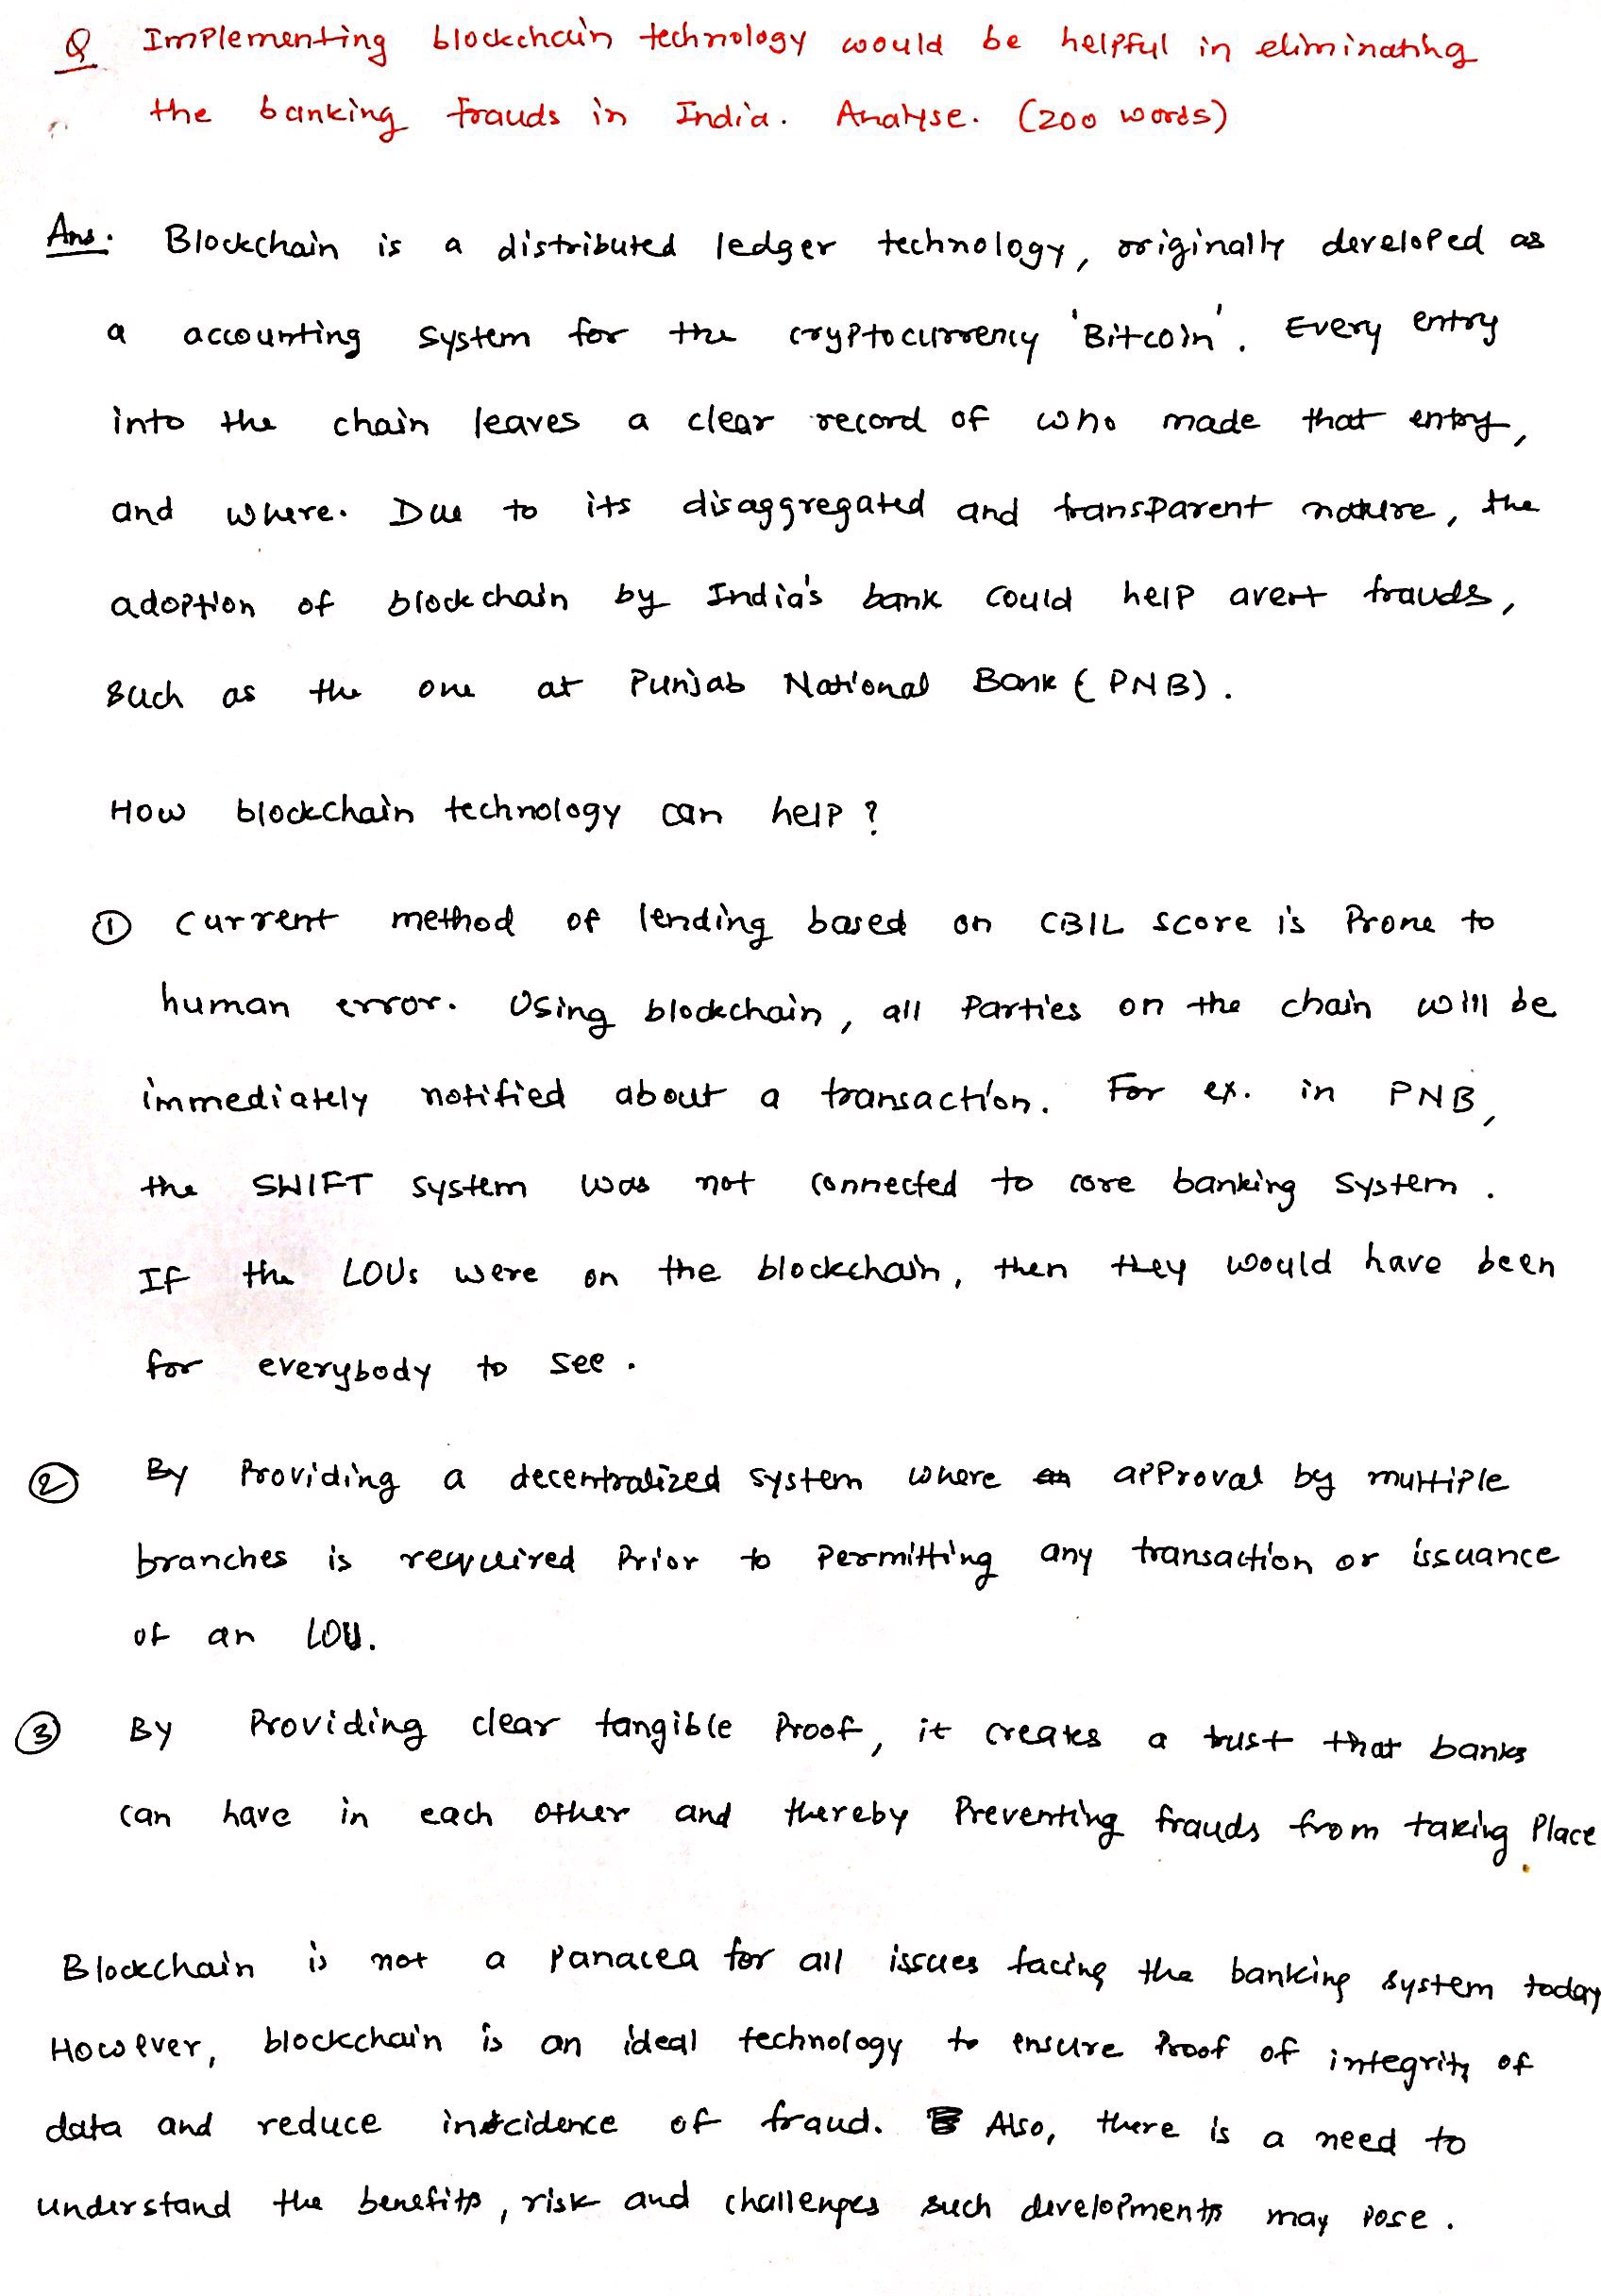 Q Implementing blockchain technology would be helpful in eliminating
the banking frauds in India. Analyse. (200 words)
Ans. Blockchain is a distributed ledger technology, originally developed as
a accounting system for the cryptocurrency 'Bitcoin'. Every entry
into the chain leaves a clear record of who made that entry,
and where. Due to its disaggregated and transparent nature, the
adoption of blockchain by India's bank could help avert frauds,
such as the one at Punjab National Bank (PNB).
How blockchain technology can help?
① Current method of lending based on CBIL score is prone to
human error. Using blockchain, all parties on the chain will be
immediately notified about a transaction. For ex. in PNB,
the SWIFT system was not connected to core banking system.
If the LOUs were on the blockchain, then they would have been
for everybody to see.
② By providing a decentralized system where approval by multiple
branches is required prior to permitting any transaction or issuance
of an LOU.
③ By providing clear tangible proof, it creates a trust that banks
can have in each other and thereby preventing frauds from taking place.
Blockchain is not a panacea for all issues facing the banking system today
However, blockchain is an ideal technology to ensure proof of integrity of
data and reduce incidence of fraud. Also, there is a need to
understand the benefits, risk and challenges such developments may pose.